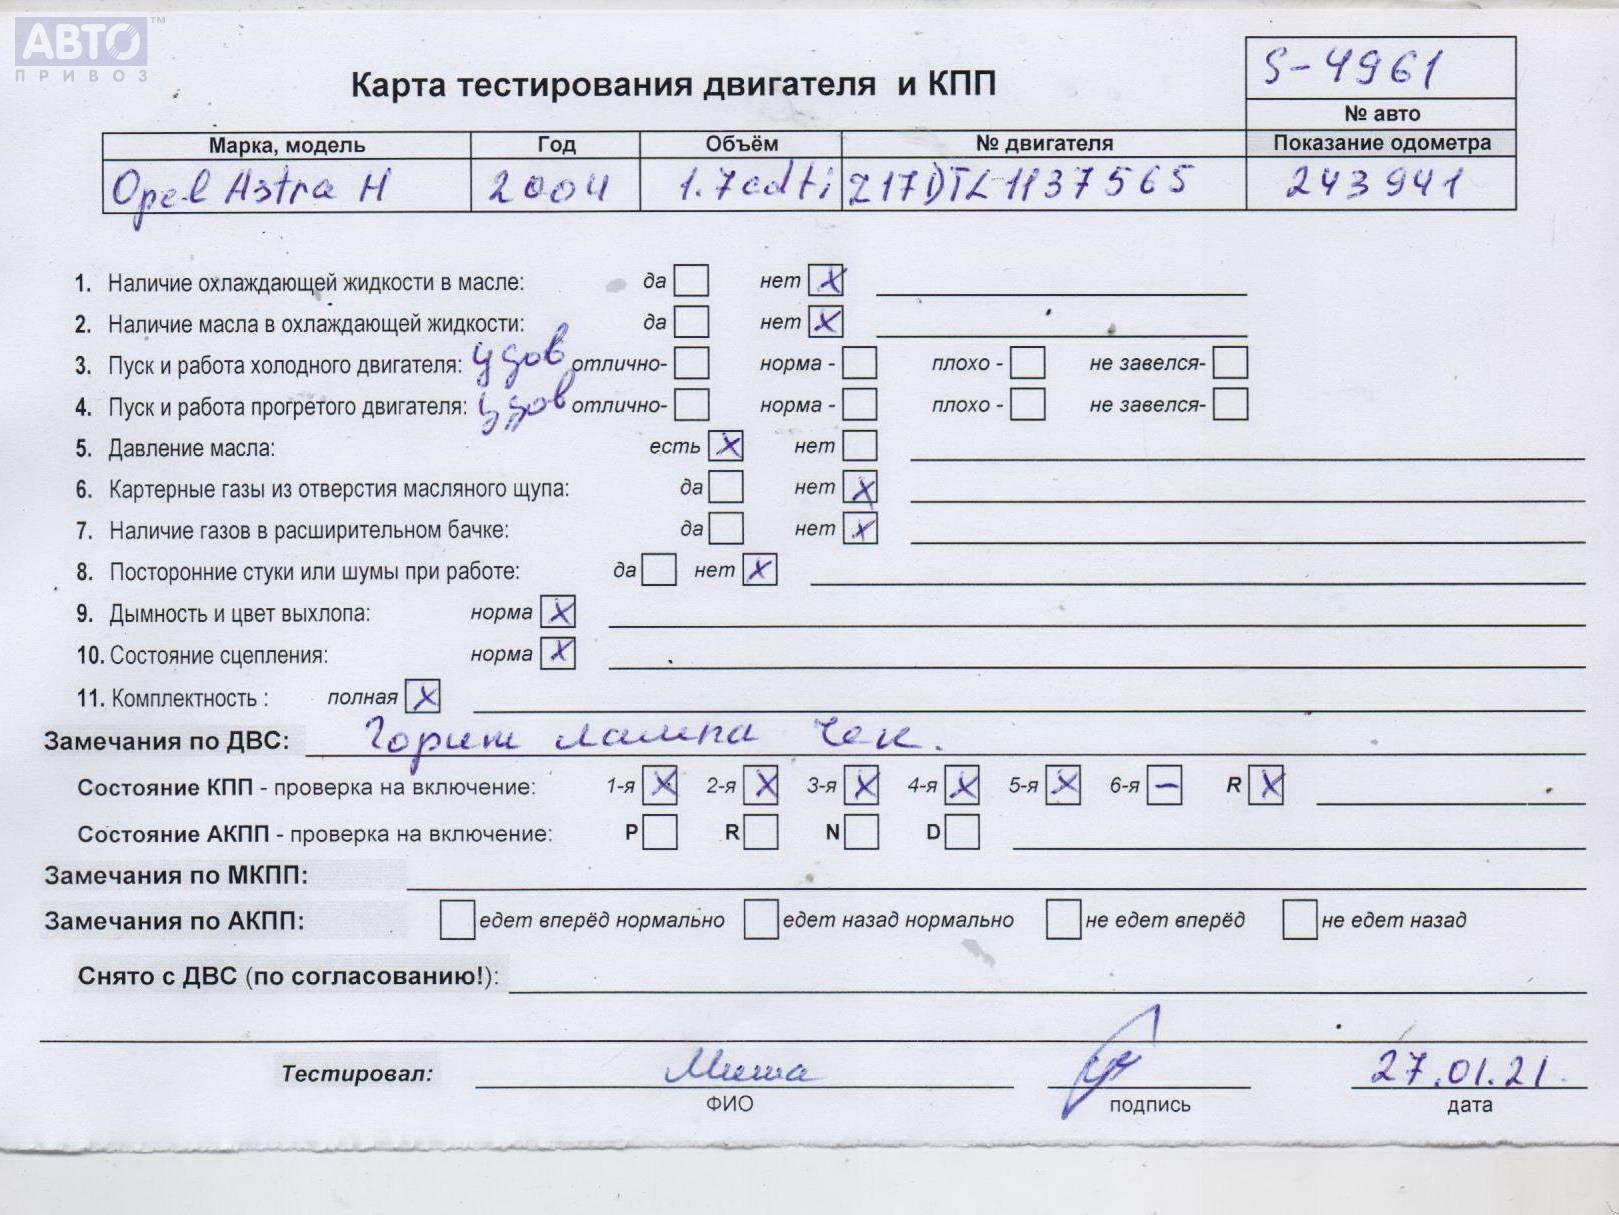 АВТО™
ПРИВОЗ
S-4961
Карта тестирования двигателя и КПП
№ авто
Марка, модель Год Объём № двигателя Показание одометра
Opel Astra H 2004 1.7cdti Z17DTL1137565 243941
1. Наличие охлаждающей жидкости в масле: да нет X
2. Наличие масла в охлаждающей жидкости: да нет X
3. Пуск и работа холодного двигателя: удов отлично- норма - плохо - не завелся-
4. Пуск и работа прогретого двигателя: удов отлично- норма - плохо - не завелся-
5. Давление масла: есть X нет
6. Картерные газы из отверстия масляного щупа: да нет X
7. Наличие газов в расширительном бачке: да нет X
8. Посторонние стуки или шумы при работе: да нет X
9. Дымность и цвет выхлопа: норма X
10. Состояние сцепления: норма X
11. Комплектность : полная X
Замечания по ДВС: Горит лампа Чек.
Состояние КПП - проверка на включение: 1-я X 2-я X 3-я X 4-я X 5-я X 6-я – R X
Состояние АКПП - проверка на включение: P R N D
Замечания по МКПП:
Замечания по АКПП: едет вперёд нормально едет назад нормально не едет вперёд не едет назад
Снято с ДВС (по согласованию!):
Тестировал: Миша 27.01.21
ФИО подпись дата